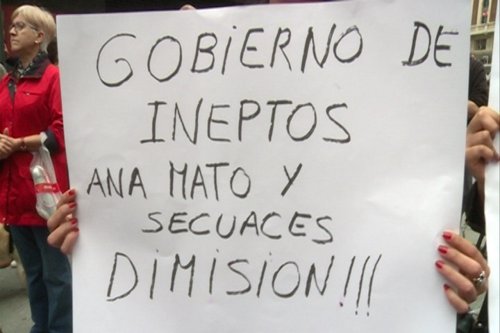 GOBIERNO DE
INEPTOS
ANA MATO Y
SECUACES
DIMISION!!!